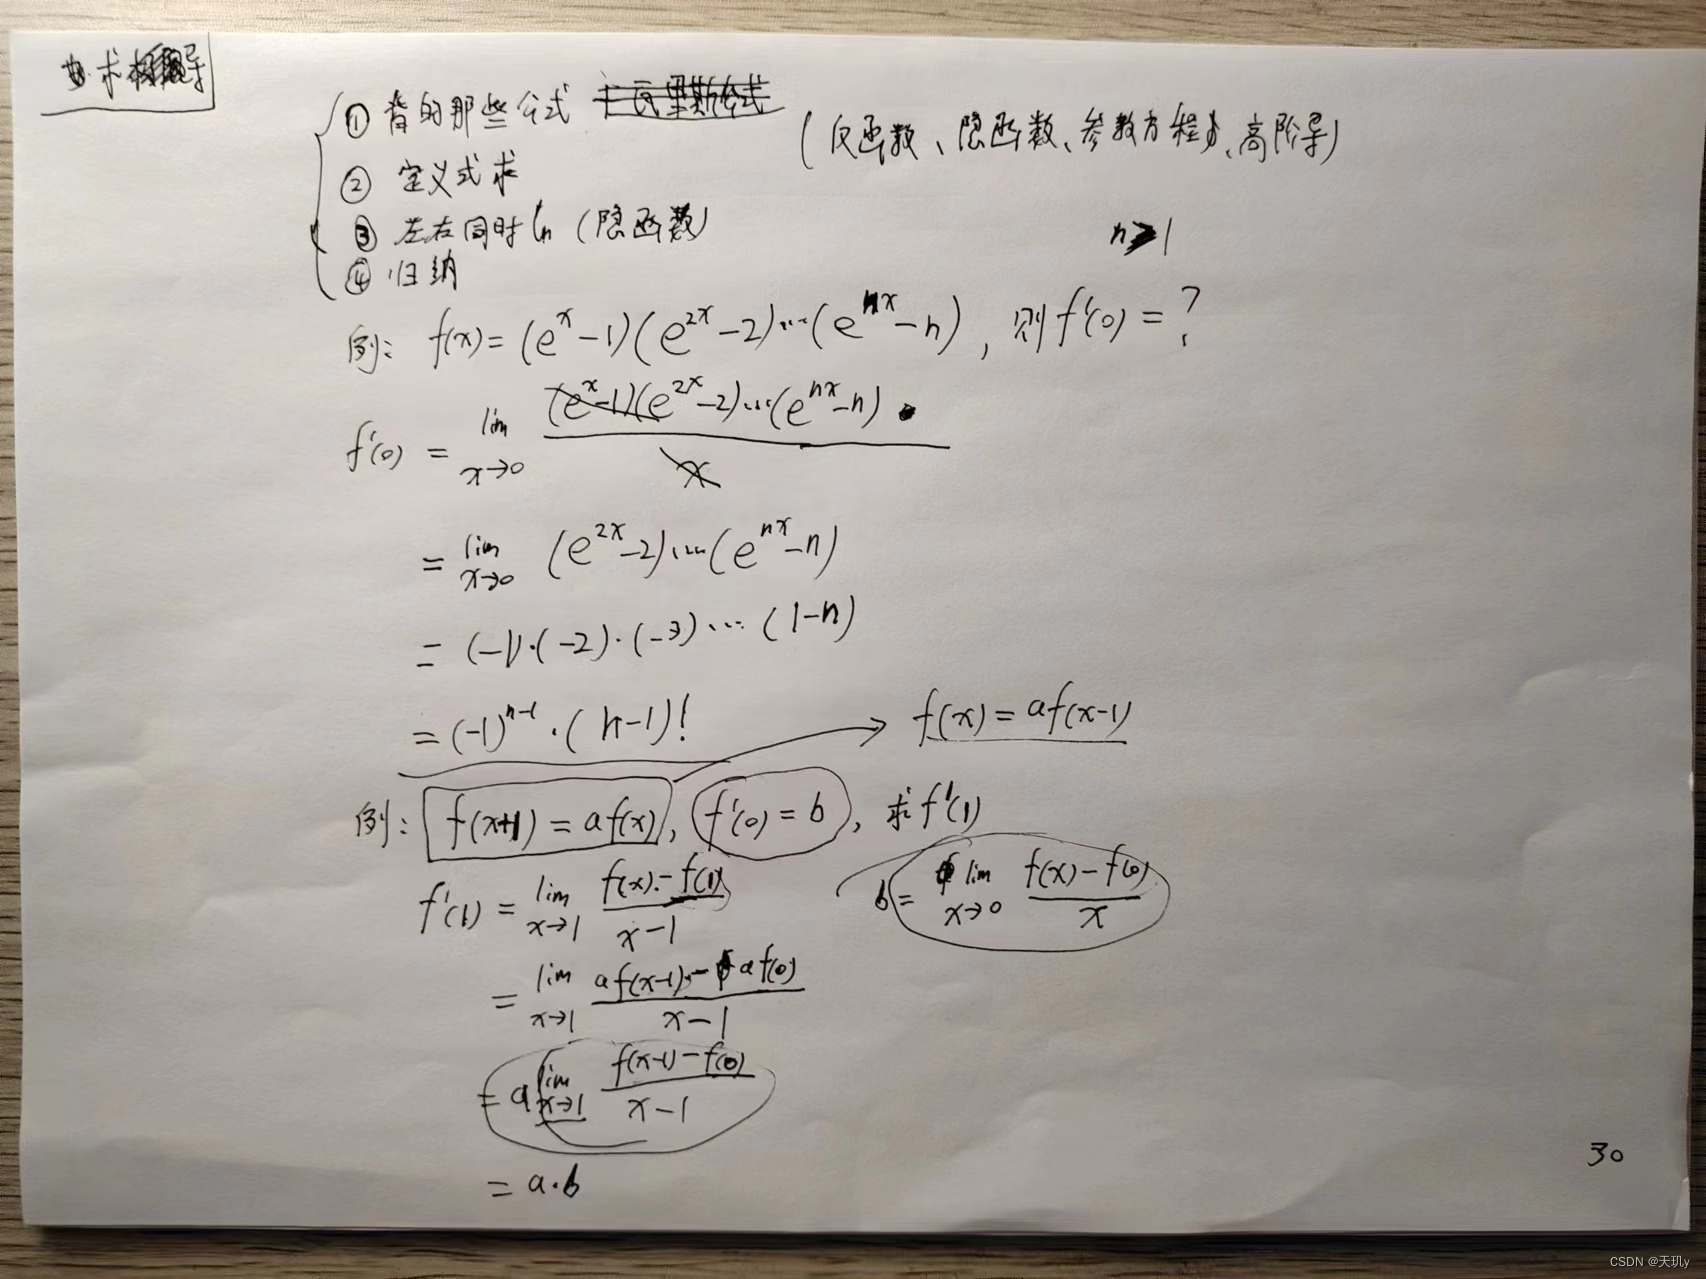 求导
① 背的那些公式 (反函数、隐函数、参数方程、高阶导)
② 定义式求
③ 左右同时ln (隐函数)
④ 归纳
n>1
例: f(x)=(e^x-1)(e^{2x}-2)…(e^{nx}-n), 则f'(0)=?
f'(0) = lim x→0 (e^x-1)(e^{2x}-2)…(e^{nx}-n) / x
= lim x→0 (e^{2x}-2)…(e^{nx}-n)
= (-1)·(-2)·(-3)…(1-n)
= (-1)^{n-1}·(n-1)!
f(x)=af(x-1)
例: f(x+1)=af(x), f'(0)=b, 求f'(1)
f'(1) = lim x→1 f(x)-f(1) / x-1
b= lim x→0 f(x)-f(0) / x
= lim x→1 af(x-1)-af(0) / x-1
= a lim x→1 f(x-1)-f(0) / x-1
= a·b
30
CSDN @天玑y